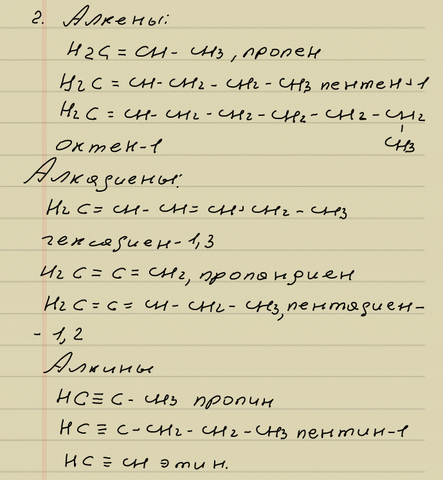 2. Алкены:
H2C = CH - CH3, пропен
H2C = CH - CH2 - CH2 - CH3 пентен-1
H2C = CH - CH2 - CH2 - CH2 - CH2 - CH2
октен-1 CH3
Алкадиены:
H2C = CH - CH = CH - CH2 - CH3
гексадиен-1,3
H2C = C = CH2, пропандиен
H2C = C = CH - CH2 - CH3, пентадиен-
- 1,2
Алкины
HC ≡ C - CH3 пропин
HC ≡ C - CH2 - CH2 - CH3 пентин-1
HC ≡ CH этин.